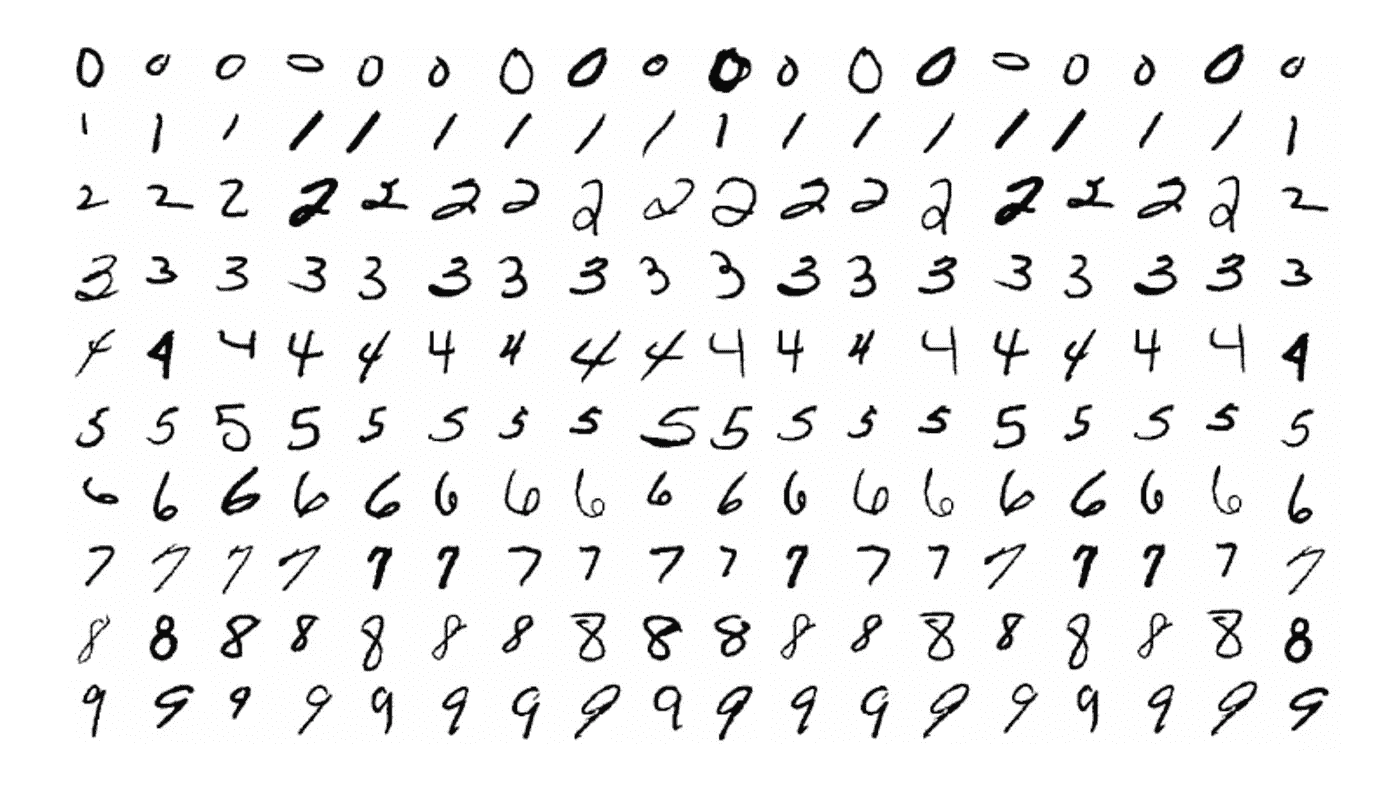 0 0 0 0 0 0 0 0 0 0 0 0 0 0 0 0 0 0
1 1 1 1 1 1 1 1 1 1 1 1 1 1 1 1 1 1
2 2 2 2 2 2 2 2 2 2 2 2 2 2 2 2 2 2
3 3 3 3 3 3 3 3 3 3 3 3 3 3 3 3 3 3
4 4 4 4 4 4 4 4 4 4 4 4 4 4 4 4 4 4
5 5 5 5 5 5 5 5 5 5 5 5 5 5 5 5 5 5
6 6 6 6 6 6 6 6 6 6 6 6 6 6 6 6 6 6
7 7 7 7 7 7 7 7 7 7 7 7 7 7 7 7 7 7
8 8 8 8 8 8 8 8 8 8 8 8 8 8 8 8 8 8
9 9 9 9 9 9 9 9 9 9 9 9 9 9 9 9 9 9